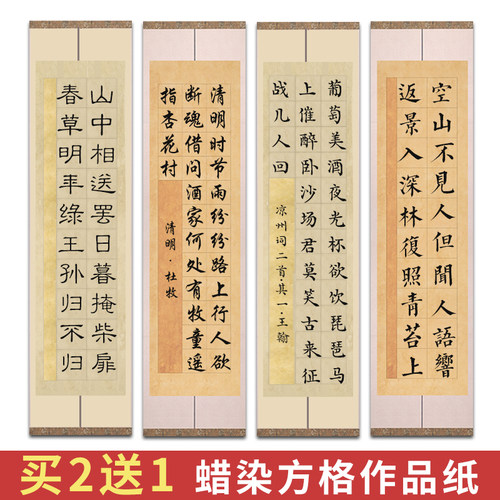 山中相送罢日暮掩柴扉
春草明年綠王孙归不归
清明时节雨纷纷路上行人欲
断魂借问酒家何处有牧童遥
指杏花村
清明·杜牧
葡萄美酒夜光杯欲饮琵琶马
上催醉卧沙场君莫笑古来征
战几人回
凉州词二首·其一·王翰
空山不見人但聞人語響
返景入深林復照青苔上
买2送1 蜡染方格作品纸